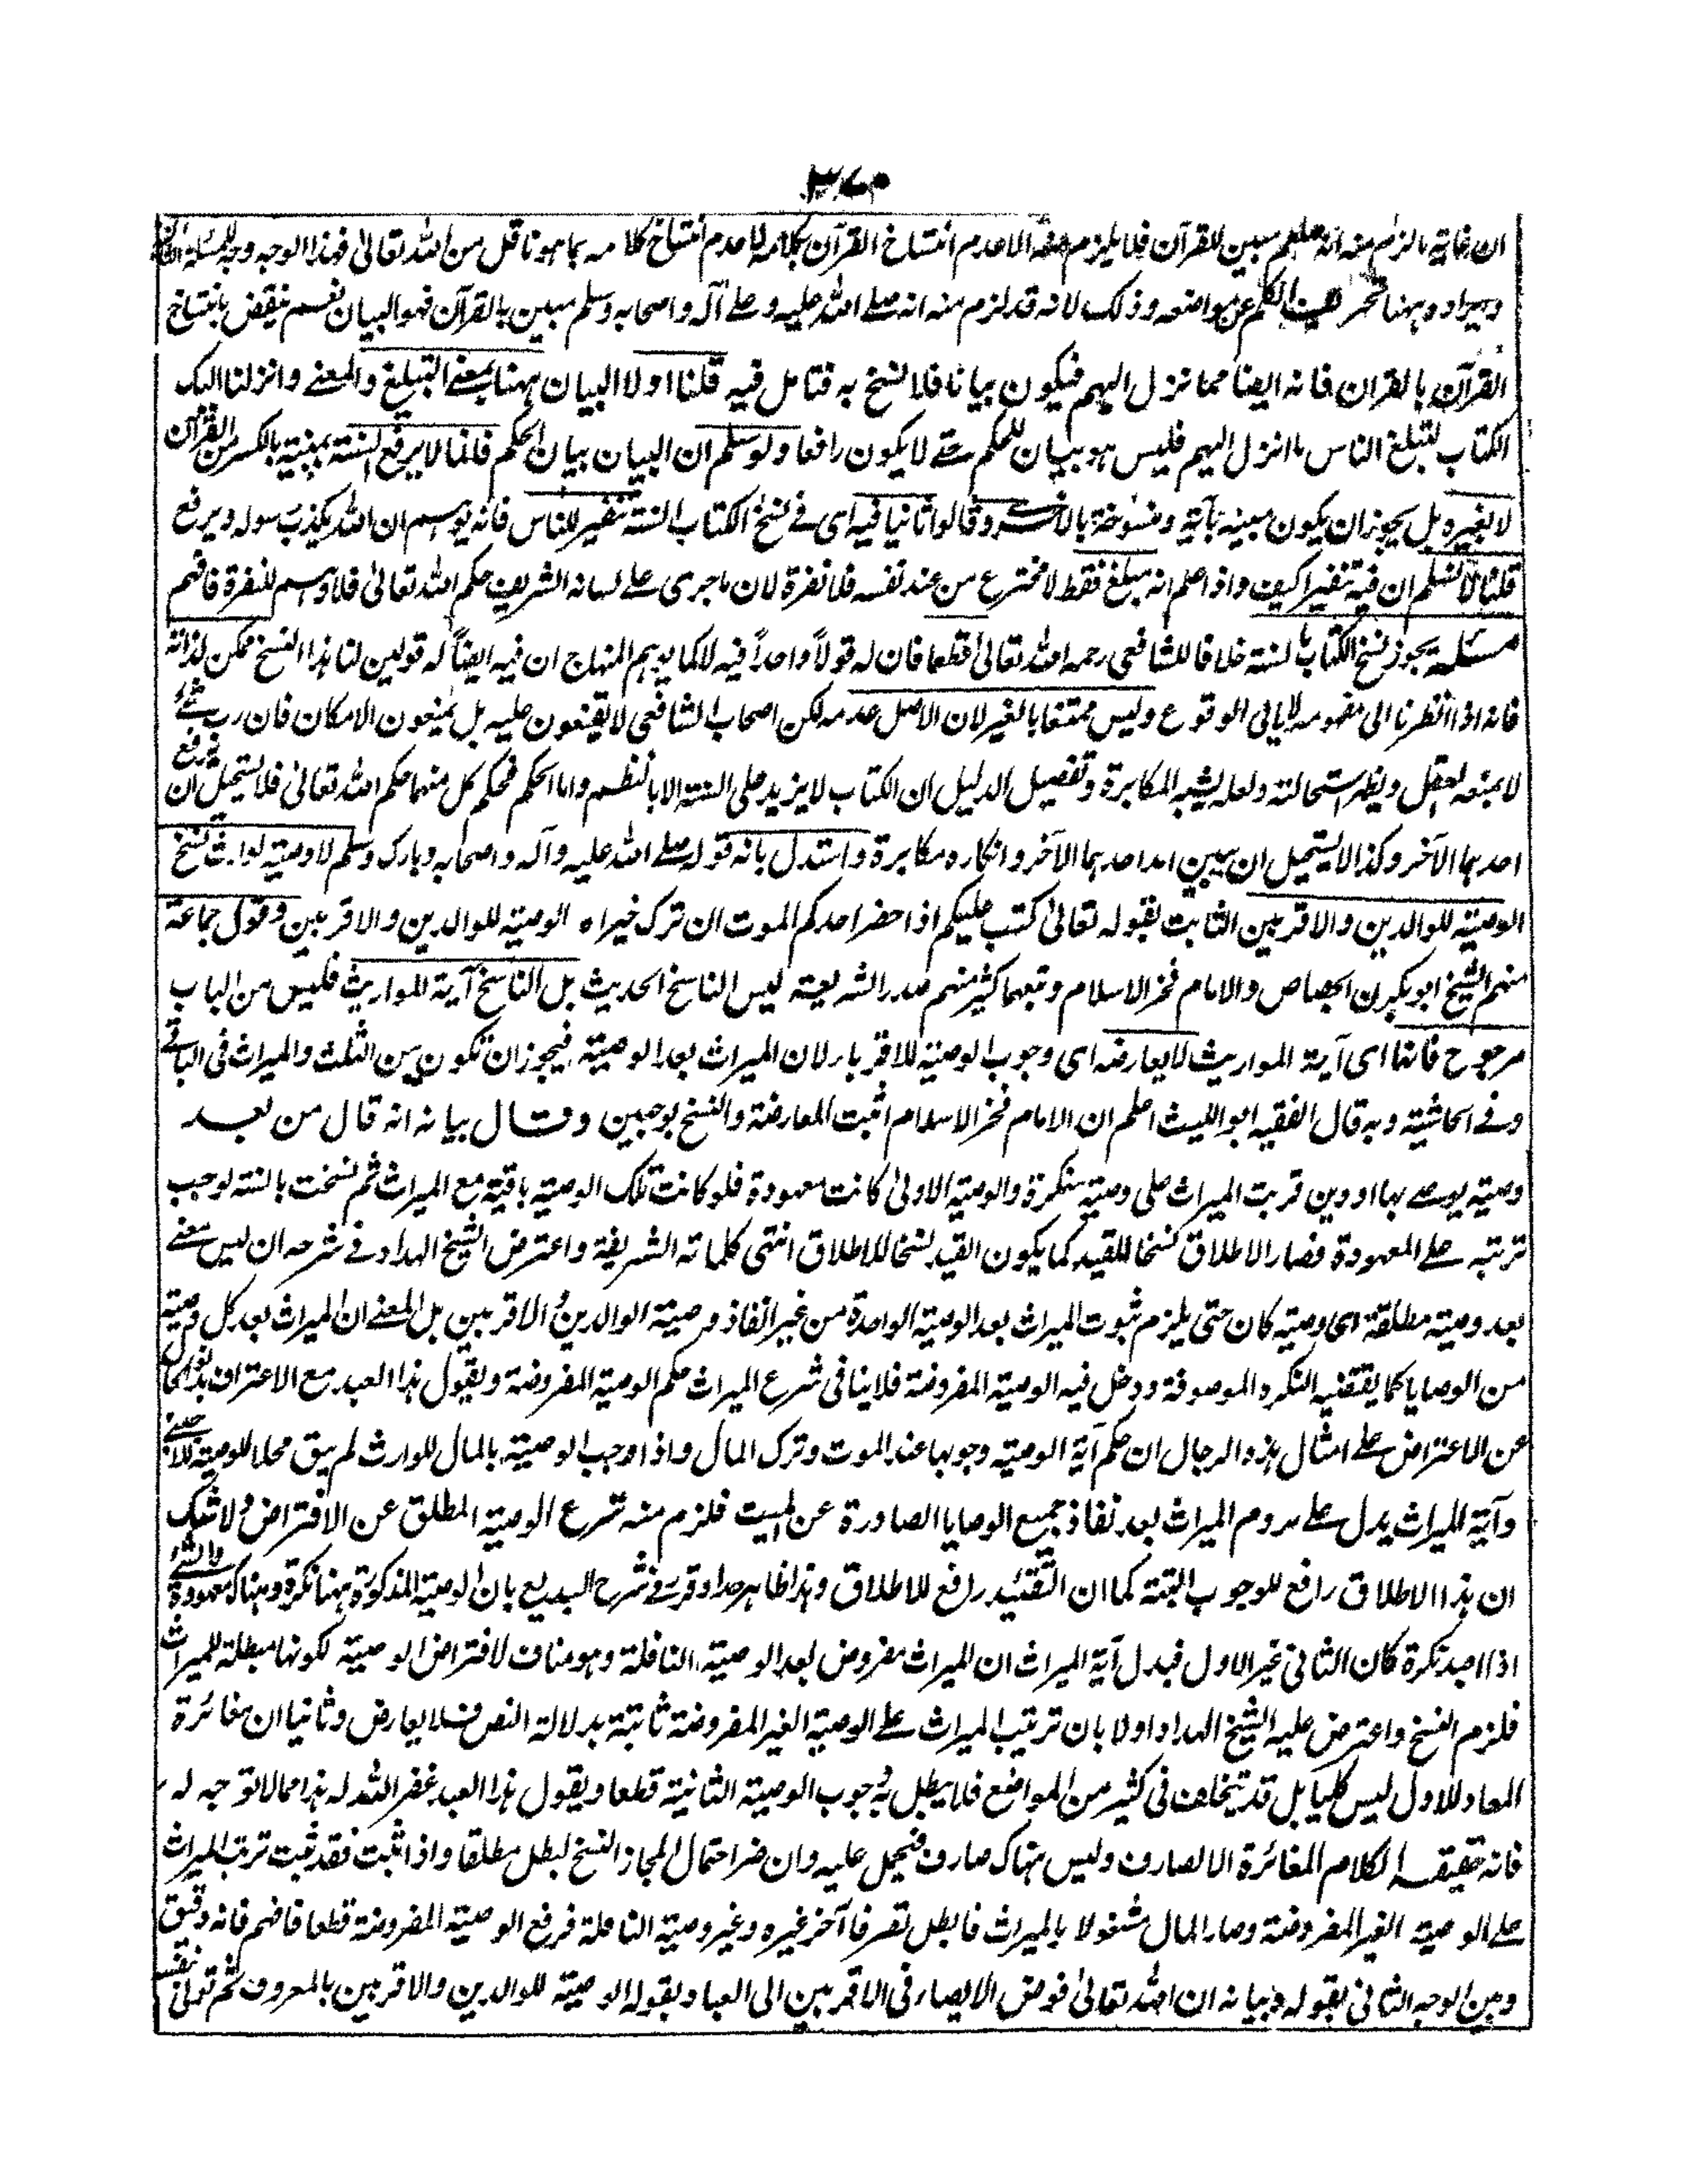 ٣٧٠
ان غاية ما لزم منه انه صلعم مبين للقرآن فلا يلزم منه الا عدم انتساخ القرآن بكلامه لا عدم انتساخ كلامه بما هو ناقل من الله تعالى فهذا الوجه وجه
ويراد وههنا تحريف الكلم عن مواضعه وذلك لانه قد لزم منه انه صلى الله عليه وعلى آله واصحابه وسلم مبين بالقرآن فهو البيان نعم ينقض بانتساخ
القرآن بالقران فانه ايضا مما نزل اليهم فيكون بيانا فلا نسخ به فتامل فيه قلنا اولا البيان ههنا بمعنى التبليغ والمعنى وانزلنا اليك
الكتاب لتبلغ الناس ما انزل اليهم فليس هو بيان للحكم حتى لا يكون رافعا ولو سلم ان البيان بيان الحكم فانما لا يرفع السنة مبينه بالكسر من القرآن
لا بغيره بل يجوز ان يكون مبينه بآية ومنسوخة بالاخرى وقالوا ثانيا فيه اى فى نسخ الكتاب السنة تنفير للناس فانه يوهم ان الله يكذب رسوله ويرفع
قلنا لا نسلم ان فيه تنفيرا كيف واذا علم انه مبلغ فقط لا مخترع من عند نفسه فلا نفرة لان ما جرى على لسانه الشريف حكم الله تعالى فلا وهم للنفرة فافهم
مسئلة يجوز نسخ الكتاب بالسنة خلافا للشافعى رحمه الله تعالى قطعا فان له قولا واحداً فيه لا كما يوهم المنهاج ان فيه ايضاً له قولين لنا هذا النسخ ممكن لذاته
فانه اذا انظرنا الى مفهومه لا يابى الوقوع وليس ممتنعا بالغير لان الاصل عدمه لكن اصحاب الشافعى لا يقنعون عليه بل يمنعون الامكان فان رب شئ
لا يمنعه العقل ويظهر استحالته ولعله يشبه المكابرة وتفصيل الدليل ان الكتاب لا يزيد على السنة الا بالنظم واما الحكم فحكم كل منهما حكم الله تعالى فلا يستحيل ان يرفع
احدهما الآخر وكذا لا يستحيل ان يبين امد احدهما الآخر وانكاره مكابرة واستدل بانه قوله صلى الله عليه وآله واصحابه وبارك وسلم لا وصية لوارث نسخ
الوصية للوالدين والاقربين الثابت بقوله تعالى كتب عليكم اذا حضر احدكم الموت ان ترك خيراه الوصية للوالدين والاقربين وقول جماعة
منهم الشيخ ابو بكرن الجصاص والامام فخر الاسلام وتبعهما كثير منهم صدر الشريعة ليس الناسخ الحديث بل الناسخ آية المواريث فليس من الباب
مرجوح فانها اى آية المواريث لا يعارضه اى وجوب الوصية للاقرباء لان الميراث بعد الوصية فيجوز ان تكون من الثلث والميراث فى الباقى
وفى الحاشية وبه قال الفقيه ابو الليث اعلم ان الامام فخر الاسلام اثبت المعارضة والنسخ بوجهين وقال بيانه انه قال من بعد
وصية يوصى بها او دين فرتب الميراث على وصية منكرة والوصية الاولى كانت معهودة فلو كانت تلك الوصية باقية مع الميراث ثم نسخت بالسنة لوجب
ترتبه على المعهودة فصار الاطلاق نسخا للقيد كما يكون القيد نسخا للاطلاق انتهى كلماته الشريفة واعترض الشيخ الهداد فى شرحه ان ليس معنى
بعد وصية مطلقة اى وصية كان حتى يلزم ثبوت الميراث بعد الوصية الواحدة من غير انفاذ وصية الوالدين والاقربين بل المعنى ان الميراث بعد كل وصية
من الوصايا كما يقتضيه النكره الموصوفة ودخل فيه الوصية المفروضة فلا ينافى شرع الميراث حكم الوصية المفروضة ويقول هذا العبد مع الاعتراف
عن الاعتراض على امثال هذه الرجال ان حكم آية الوصية وجوبها عند الموت وترك المال واذا اوجب الوصية بالمال للوارث لم يبق محلا للوصية للاجنبى
وآية الميراث يدل على لزوم الميراث بعد نفاذ جميع الوصايا الصادرة عن الميت فلزم منه شرع الوصية المطلق عن الافتراض ولا شك
ان هذا الاطلاق رافع للوجوب البتة كما ان التقئيد رافع للاطلاق وهذا ظاهر جدا وقرر فى شرح البديع بان الوصية المذكورة ههنا نكرة وهناك معهودة والشئ
اذا اعيد نكرة كان الثانى غير الاول فيدل آية الميراث ان الميراث مفروض بعد الوصية النافلة وهو مناف لافتراض الوصية لكونها مبطلة للميراث
فلزم النسخ واعترض عليه الشيخ الهداد اولا بان ترتيب الميراث على الوصية الغير المفروضة ثابتة بدلالة النص فلا يعارض وثانيا ان مغائرة
المعاد للاول ليس كليا بل قد يتخلف فى كثير من المواضع فلا يبطل به وجوب الوصية الثانية قطعا ويقول هذا العبد غفر الله له هذا مما لا توجه له
فانه حقيقة الكلام المغائرة الا لصارف وليس هناك صارف فيحمل عليه وان ضر احتمال المجاز النسخ لبطل مطلقا واذا ثبت فقد ثبت ترتب الميراث
على الوصية الغير المفروضة وصار المال مشغولا بالميراث فابطل تصرفا آخر غيره وغير وصية النافلة فرفع الوصية المفروضة قطعا فافهم فانه دقيق
وبين الوجه الثانى بقوله وبيانه ان الله تعالى فوض الايصاء فى الاقربين الى العباد بقوله الوصية للوالدين والاقربين بالمعروف ثم تولى بنفسه